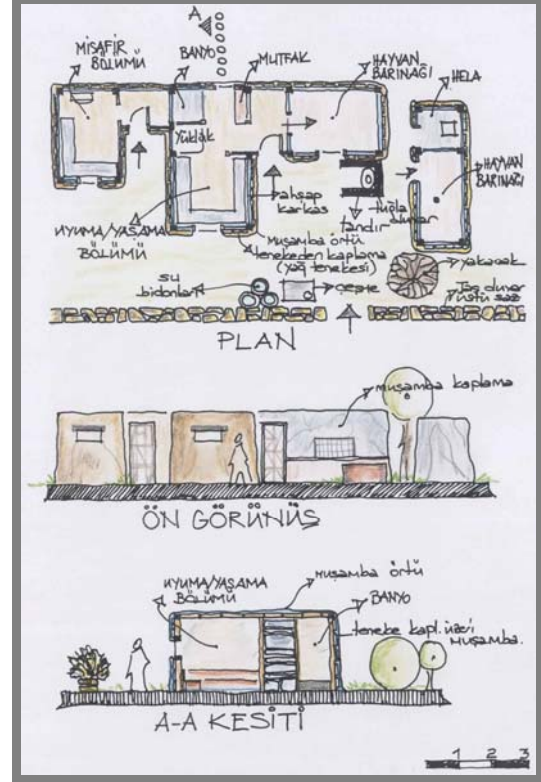 A
MİSAFİR
BÖLÜMÜ
BANYO
MUTFAK
HAYVAN
BARINAĞI
HELA
Yüklük
HAYVAN
BARINAĞI
ahşap
karkas
tuğla
duvar
tandır
UYUMA/YAŞAMA
BÖLÜMÜ
muşamba örtü
tenekeden kaplama
(yağ tenekesi)
su
bidonları
çeşme
yakacak
Taş duvar
üstü saz
PLAN
muşamba kaplama
ÖN GÖRÜNÜŞ
UYUMA/YAŞAMA
BÖLÜMÜ
muşamba örtü
BANYO
teneke kapl. üzeri
muşamba.
A-A KESİTİ
1 2 3